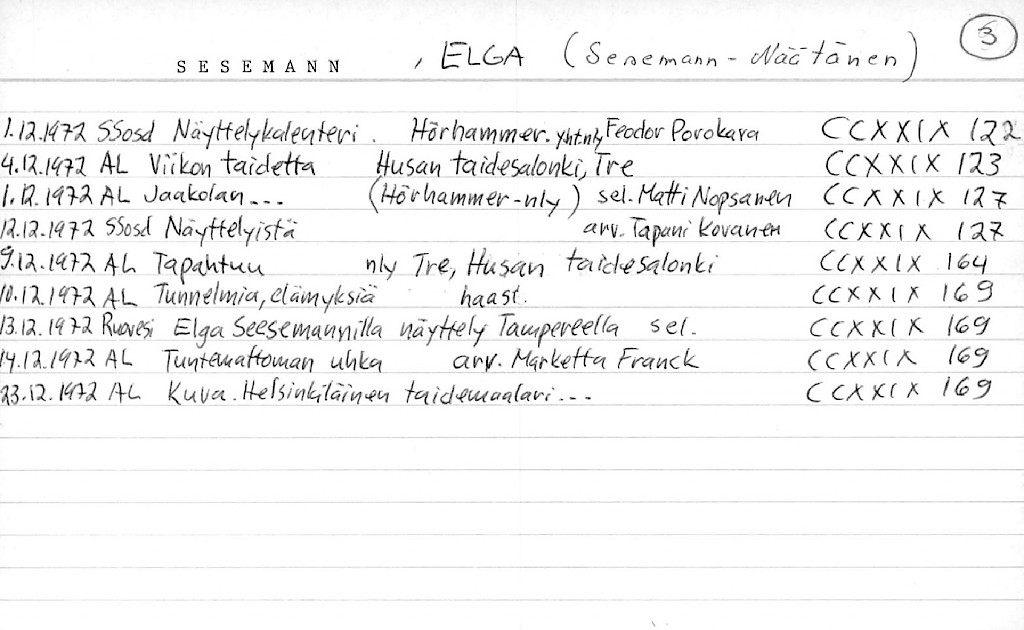 SESEMANN , ELGA (Sesemann - Näätänen) 3
1.12.1972 SSosd Näyttelykalenteri. Hörhammer. yht.nly Feodor Porokara CCXXIX 122
4.12.1972 AL Viikon taidetta Husan taidesalonki, Tre CCXXIX 123
1.12.1972 AL Jaakolan... (Hörhammer-nly) sel. Matti Nopsanen CCXXIX 127
12.12.1972 SSosd Näyttelyistä arv. Tapani Kovanen CCXXIX 127
9.12.1972 AL Tapahtuu nly Tre, Husan taidesalonki CCXXIX 164
10.12.1972 AL Tunnelmia, elämyksiä haast. CCXXIX 169
13.12.1972 Ruovesi Elga Seesemannilla näyttely Tampereella sel. CCXXIX 169
14.12.1972 AL Tuntemattoman uhka arv. Marketta Franck CCXXIX 169
23.12.1972 AL Kuva. Helsinkiläinen taidemaalari... CCXXIX 169